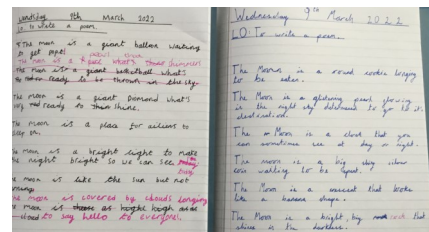 Wendsday 9th March 2022
LO: To write a poem.
The moon is a giant balloon waiting
to get popt!
The moon is a
The moon is a giant basketball what's
ready to be thrown in the sky.
The moon is a giant Diamond what's
ready to them shine.
The moon is a place for ailions to
The moon is a bright light to make
the night bright so we can see
The moon is like the sun but not
The moon is covered by clouds longing
to say hello to everyone!
Wednesday 9th March 2022
LO: To write a poem.
The Moon is a round cookie longing
to be eaten.
The Moon is a glittering pearl glowing
in the night sky determined to go to it's
destination.
The Moon is a cloud that you
can sometimes see at day or night.
The moon is a big shiny silver
coin waiting to be spent.
The Moon is a crescent that looks
like a banana shape.
The Moon is a bright, big that
shines in the darkness.